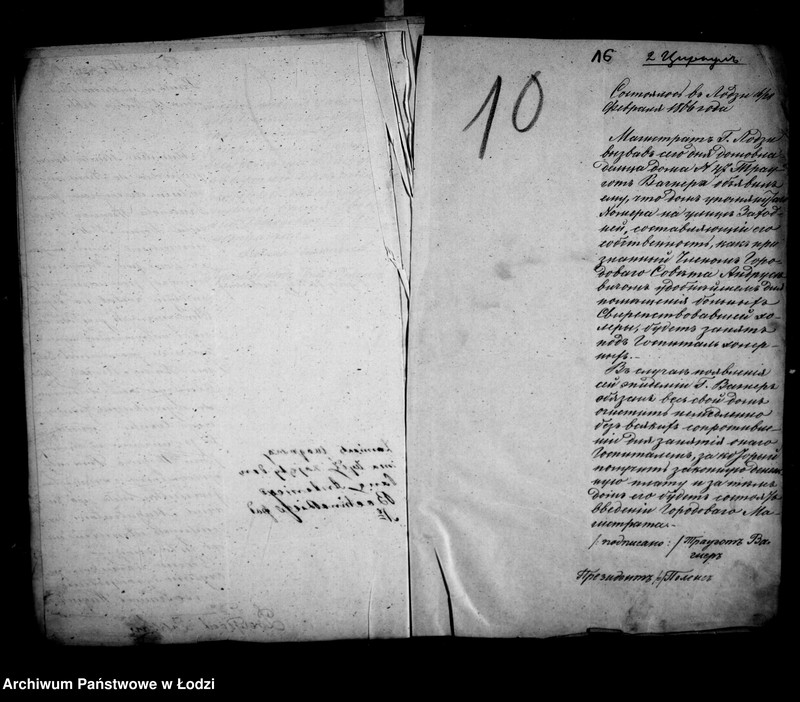 16 2 Циркулъ
10
Состоялось въ Лодзи
Февраля 1866 года
Магистратъ Г. Лодзи
вызвавъ сего дня домовла
дѣльца дома N Трау
готъ Вагнера объявилъ
ему, что домъ упомянутаго
Номера на улицѣ Заход
ней, составляющій его
собственность, какъ при
знанный Членомъ Горо
доваго Совѣта Андрусе
вичомъ удобнѣйшемъ для
помѣщенія больныхъ
Свирепствовавшей хо-
леры, будетъ занятъ
подъ Госпиталь холер-
ныхъ.-
Въ случаѣ появленія
сей эпидеміи Г. Вагнеръ
обязанъ весь свой домъ
очистить немедленно
безъ всякихъ сопротивле
ній для занятія онаго
Госпиталемъ, за который
получитъ законную денеж
ную плату и затѣмъ
домъ его будетъ состоять
въ вѣденіи Городоваго Ма-
гистрата.-
/подписано:/ Трауготъ Ва-
гнеръ
Президентъ /-/ Поленсъ
Archiwum Państwowe w Łodzi